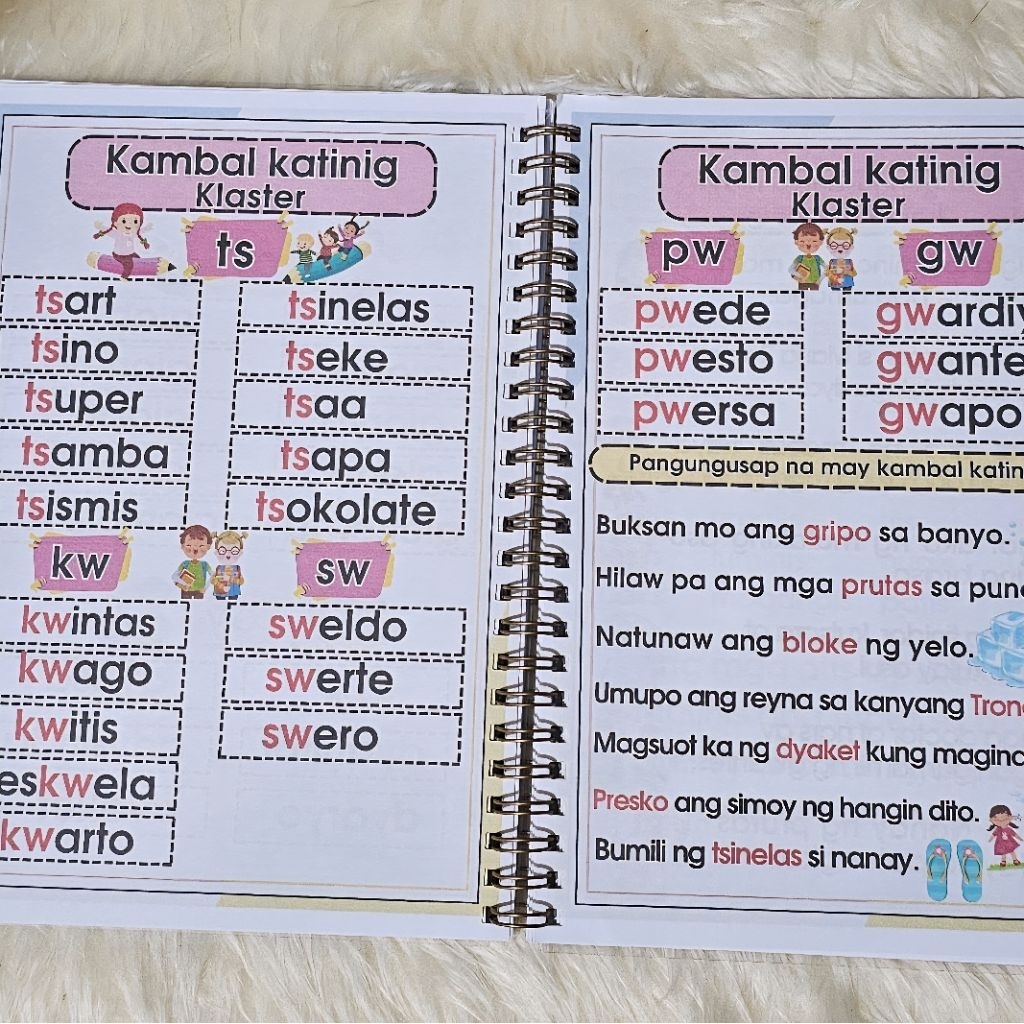 Kambal katinig
Klaster
ts
tsart
tsino
tsuper
tsamba
tsismis
tsinelas
tseke
tsaa
tsapa
tsokolate
kw
kwintas
kwago
kwitis
eskwela
kwarto
sw
sweldo
swerte
swero
Kambal katinig
Klaster
pw
pwede
pwesto
pwersa
gw
gwapo
Pangungusap na may kambal
Buksan mo ang gripo sa banyo.
Hilaw pa ang mga prutas sa
Natunaw ang bloke ng yelo.
Umupo ang reyna sa kanyang
Magsuot ka ng dyaket kung
Presko ang simoy ng hangin dito.
Bumili ng tsinelas si nanay.